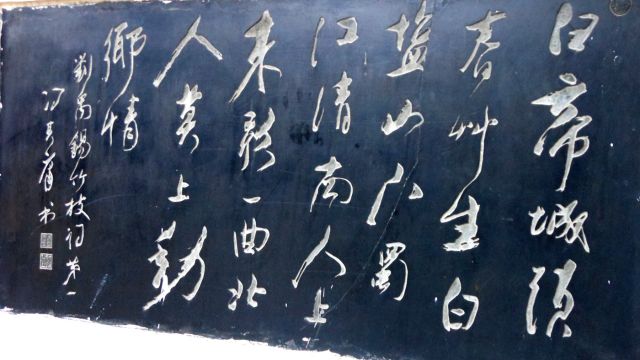 白帝城頭
春艸生白
塩山下蜀
江清南人上
来歌一曲北
人莫上動
鄉情
劉禹錫竹枝詞第一
冯书